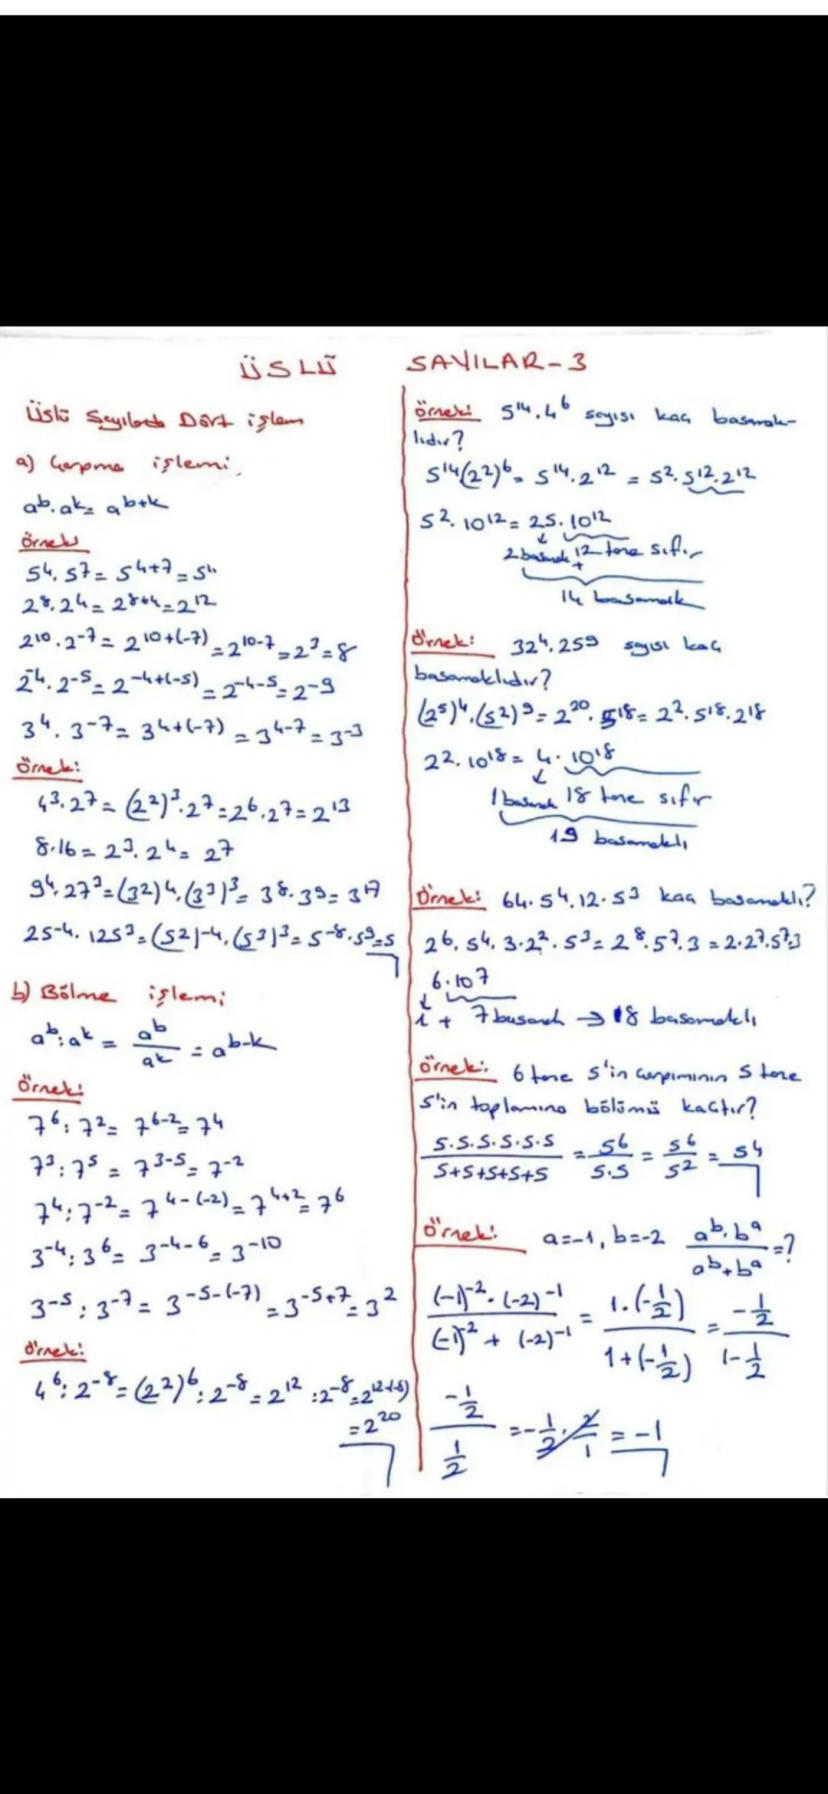 ÜSLÜ SAYILAR-3
Üslü Sayılarda Dört işlem
a) Çarpma işlemi
a^b.a^k = a^(b+k)
Örnek:
5^4.5^7 = 5^(4+7) = 5^11
2^8.2^4 = 2^(8+4) = 2^12
2^10.2^-7 = 2^(10+(-7)) = 2^(10-7) = 2^3 = 8
2^-4.2^-5 = 2^(-4+(-5)) = 2^(-4-5) = 2^-9
3^4.3^-7 = 3^(4+(-7)) = 3^(4-7) = 3^-3
Örnek:
4^3.2^7 = (2^2)^3.2^7 = 2^6.2^7 = 2^13
8.16 = 2^3.2^4 = 2^7
9^4.27^3 = (3^2)^4.(3^3)^3 = 3^8.3^9 = 3^17
25^-4.125^3 = (5^2)^-4.(5^3)^3 = 5^-8.5^9 = 5
b) Bölme işlemi
a^b:a^k = a^b/a^k = a^(b-k)
Örnek:
7^6:7^2 = 7^(6-2) = 7^4
7^3:7^5 = 7^(3-5) = 7^-2
7^4:7^-2 = 7^(4-(-2)) = 7^(4+2) = 7^6
3^-4:3^6 = 3^(-4-6) = 3^-10
3^-5:3^-7 = 3^(-5-(-7)) = 3^(-5+7) = 3^2
Örnek:
4^6:2^-8 = (2^2)^6:2^-8 = 2^12:2^-8 = 
= 2^20
Örnek: 5^14.4^6 sayısı kaç basamak-
lıdır?
5^14(2^2)^6 = 5^14.2^12 = 5^2.5^12.2^12
5^2.10^12 = 25.10^12
2 basamak + 12 tane sıfır
14 basamak
Örnek: 32^4.25^9 sayısı kaç
basamaklıdır?
(2^5)^4.(5^2)^9 = 2^20.5^18 = 2^2.5^18.2^18
2^2.10^18 = 4.10^18
1 basamak 18 tane sıfır
19 basamaklı
Örnek: 64.5^4.12.5^3 kaç basamaklı?
2^6.5^4.3.2^2.5^3 = 2^8.5^7.3 = 2.2^7.5^7.3
6.10^7
1 + 7 basamak → 8 basamaklı
Örnek: 6 tane 5'in çarpımının 5 tane
5'in toplamına bölümü kaçtır?
5.5.5.5.5.5/5+5+5+5+5 = 5^6/5.5 = 5^6/5^2 = 5^4
Örnek: a=-1, b=-2 a^b.b^a/a^b+b^a =?
(-1)^-2.(-2)^-1/(-1)^-2+(-2)^-1 = 1.(-1/2)/1+(-1/2) = -1/2/1-1/2
-1/2/1/2 = -1/2.2/1 = -1